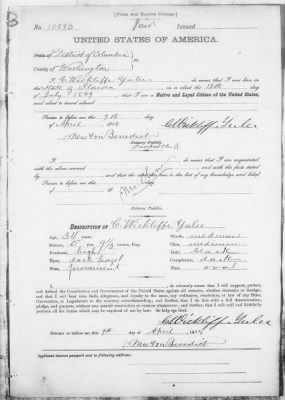 [FOR NATIVE CITIZEN.]
No. 10293 Issued
UNITED STATES OF AMERICA.
State of District of Columbia
County of Washington
I, C. Wickliffe Yulee do swear that I was born in
the State of Florida on or about the 12th day
of July 1849 that I am a Native and Loyal Citizen of the United States,
and about to travel abroad.
Sworn to before me this 9th day
of April
C. Wickliffe Yulee
Newton Benedict
Notary Public.
do swear that I am acquainted
with the above named and with the facts stated
to the best of my knowledge and belief.
Sworn to before me this day
of 18
Notary Public.
DESCRIPTION OF C. Wickliffe Yulee
Age, 34 years. Mouth, medium
Stature, 5 feet 9 1/2 inches, Eng. Chin, medium
Forehead, high Hair, black
Eyes, dark hazel Complexion, dark
Nose, prominent Face, oval
I, do solemnly swear that I will support, protect,
and defend the Constitution and Government of the United States against all enemies, whether domestic or foreign;
and that I will bear true faith, allegiance, and loyalty to the same, any ordinance, resolution, or law of any State,
Convention, or Legislature to the contrary notwithstanding; and further, that I do this with a full determination,
pledge, and purpose, without any mental reservation or evasion whatsoever; and further, that I will well and faithfully
perform all the duties which may be required of me by law: So help me God.
C. Wickliffe Yulee
Sworn to before me this 9th day of April
Newton Benedict